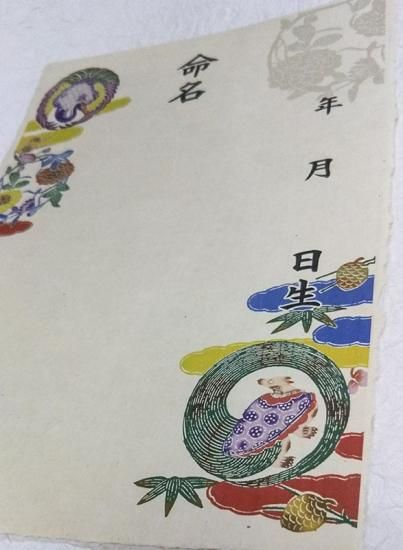 年月日生
命名